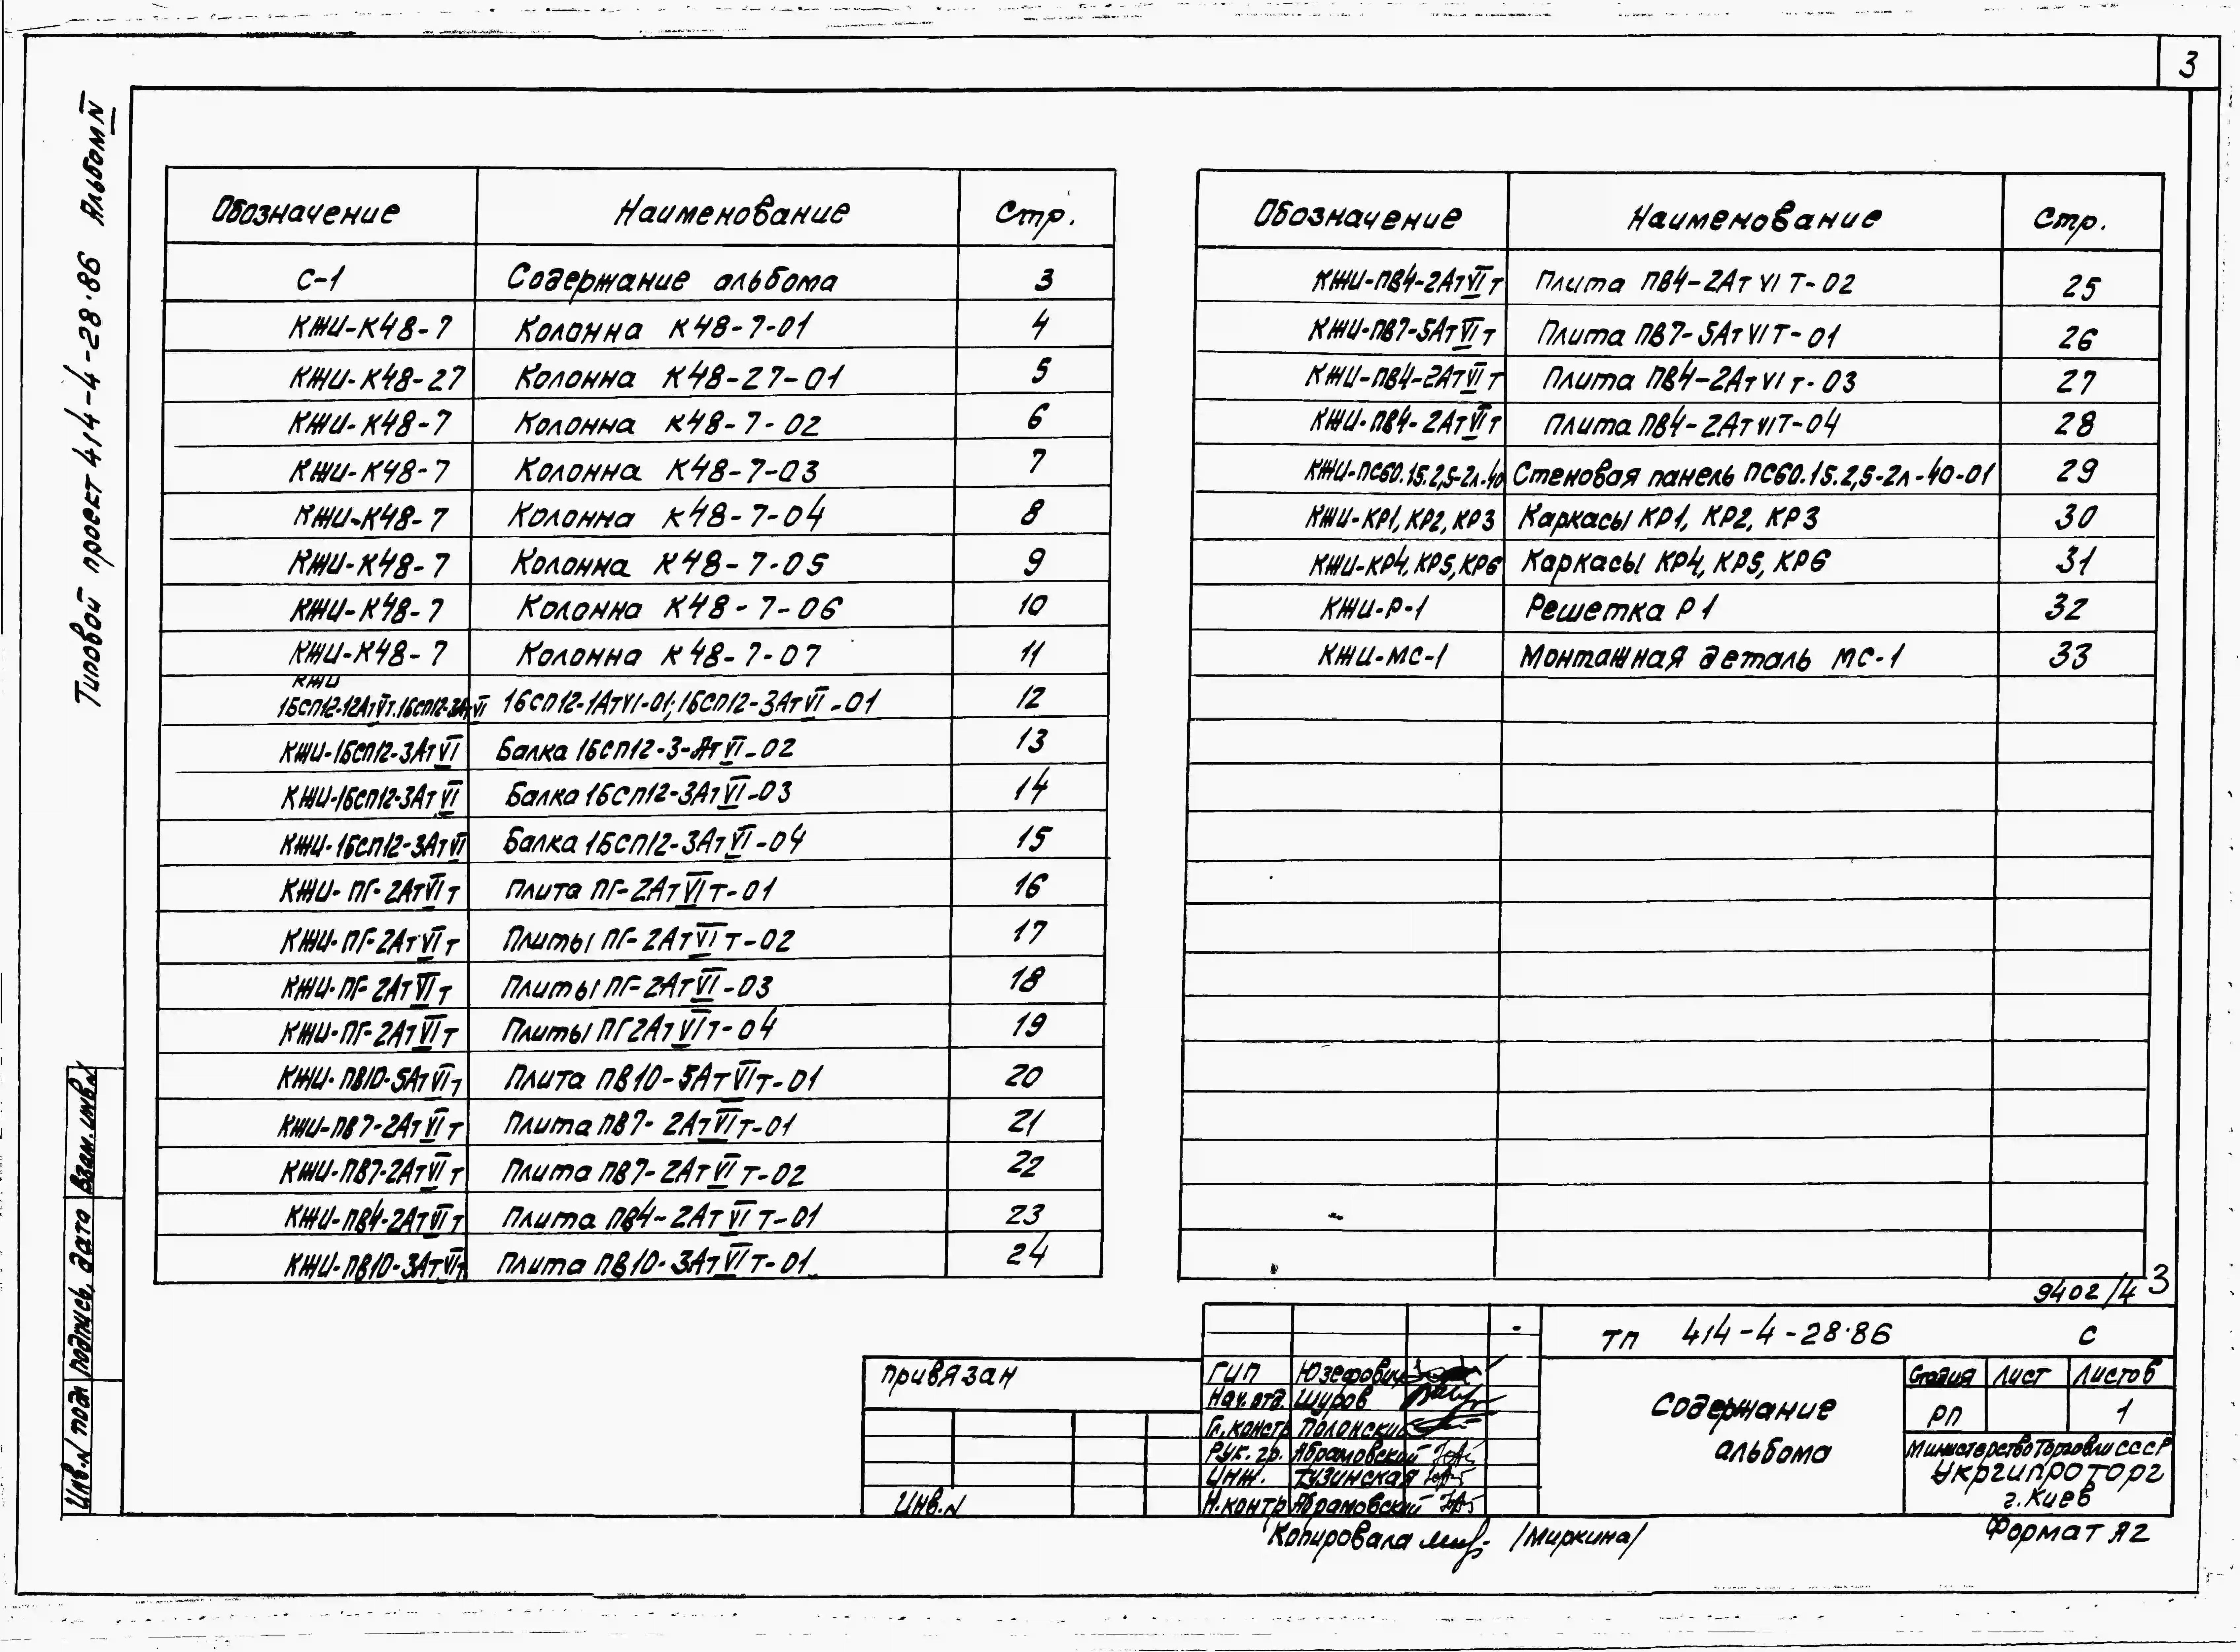 3
Типовой проект 414-4-28·86 Альбом IV
Обозначение Наименование Стр.
С-1 Содержание альбома 3
КЖИ-К48-7 Колонна К48-7-01 4
КЖИ-К48-27 Колонна К48-27-01 5
КЖИ-К48-7 Колонна К48-7-02 6
КЖИ-К48-7 Колонна К48-7-03 7
КЖИ-К48-7 Колонна К48-7-04 8
КЖИ-К48-7 Колонна К48-7-05 9
КЖИ-К48-7 Колонна К48-7-06 10
КЖИ-К48-7 Колонна К48-7-07 11
КЖИ
1БСП12-12АтVт.1БСП12-3АтVI 1БСП12-1АтVI-01; 1БСП12-3АтVI-01 12
КЖИ-1БСП12-3АтVI Балка 1БСП12-3-АтVI-02 13
КЖИ-1БСП12-3АтVI Балка 1БСП12-3АтVI-03 14
КЖИ-1БСП12-3АтVI Балка 1БСП12-3АтVI-04 15
КЖИ-ПГ-2АтVIт Плита ПГ-2АтVIт-01 16
КЖИ-ПГ-2АтVIт Плиты ПГ-2АтVIт-02 17
КЖИ-ПГ-2АтVIт Плиты ПГ-2АтVI-03 18
КЖИ-ПГ-2АтVIт Плиты ПГ2АтVIт-04 19
КЖИ-ПВ10-5АтVIт Плита ПВ10-5АтVIт-01 20
КЖИ-ПВ7-2АтVIт Плита ПВ7-2АтVIт-01 21
КЖИ-ПВ7-2АтVIт Плита ПВ7-2АтVIт-02 22
КЖИ-ПВ4-2АтVIт Плита ПВ4-2АтVIт-01 23
КЖИ-ПВ10-3АтVIт Плита ПВ10-3АтVIт-01 24
Обозначение Наименование Стр.
КЖИ-ПВ4-2АтVIт Плита ПВ4-2АтVIт-02 25
КЖИ-ПВ7-5АтVIт Плита ПВ7-5АтVIт-01 26
КЖИ-ПВ4-2АтVIт Плита ПВ4-2АтVIт-03 27
КЖИ-ПВ4-2АтVIт Плита ПВ4-2АтVIт-04 28
КЖИ-ПС60.15.2,5-2л-40 Стеновая панель ПС60.15.2,5-2л-40-01 29
КЖИ-КР1, КР2, КР3 Каркасы КР1, КР2, КР3 30
КЖИ-КР4, КР5, КР6 Каркасы КР4, КР5, КР6 31
КЖИ-Р-1 Решетка Р1 32
КЖИ-МС-1 Монтажная деталь МС-1 33
9402/4 3
ТП 414-4-28·86 С
Содержание
альбома
Стадия Лист Листов
РП 1
Министерство Торговли СССР
Укргипроторг
г. Киев
ГИП Юзефович
Нач. отд. Щуров
Гл. констр Полонский
Рук. гр. Абрамовский
Инж. Тузинская
Н.контр Абрамовский
привязан
Инв.N
Инв.N подл подпись, дата Взам.инв.N
Копировала /Миркина/
Формат А2